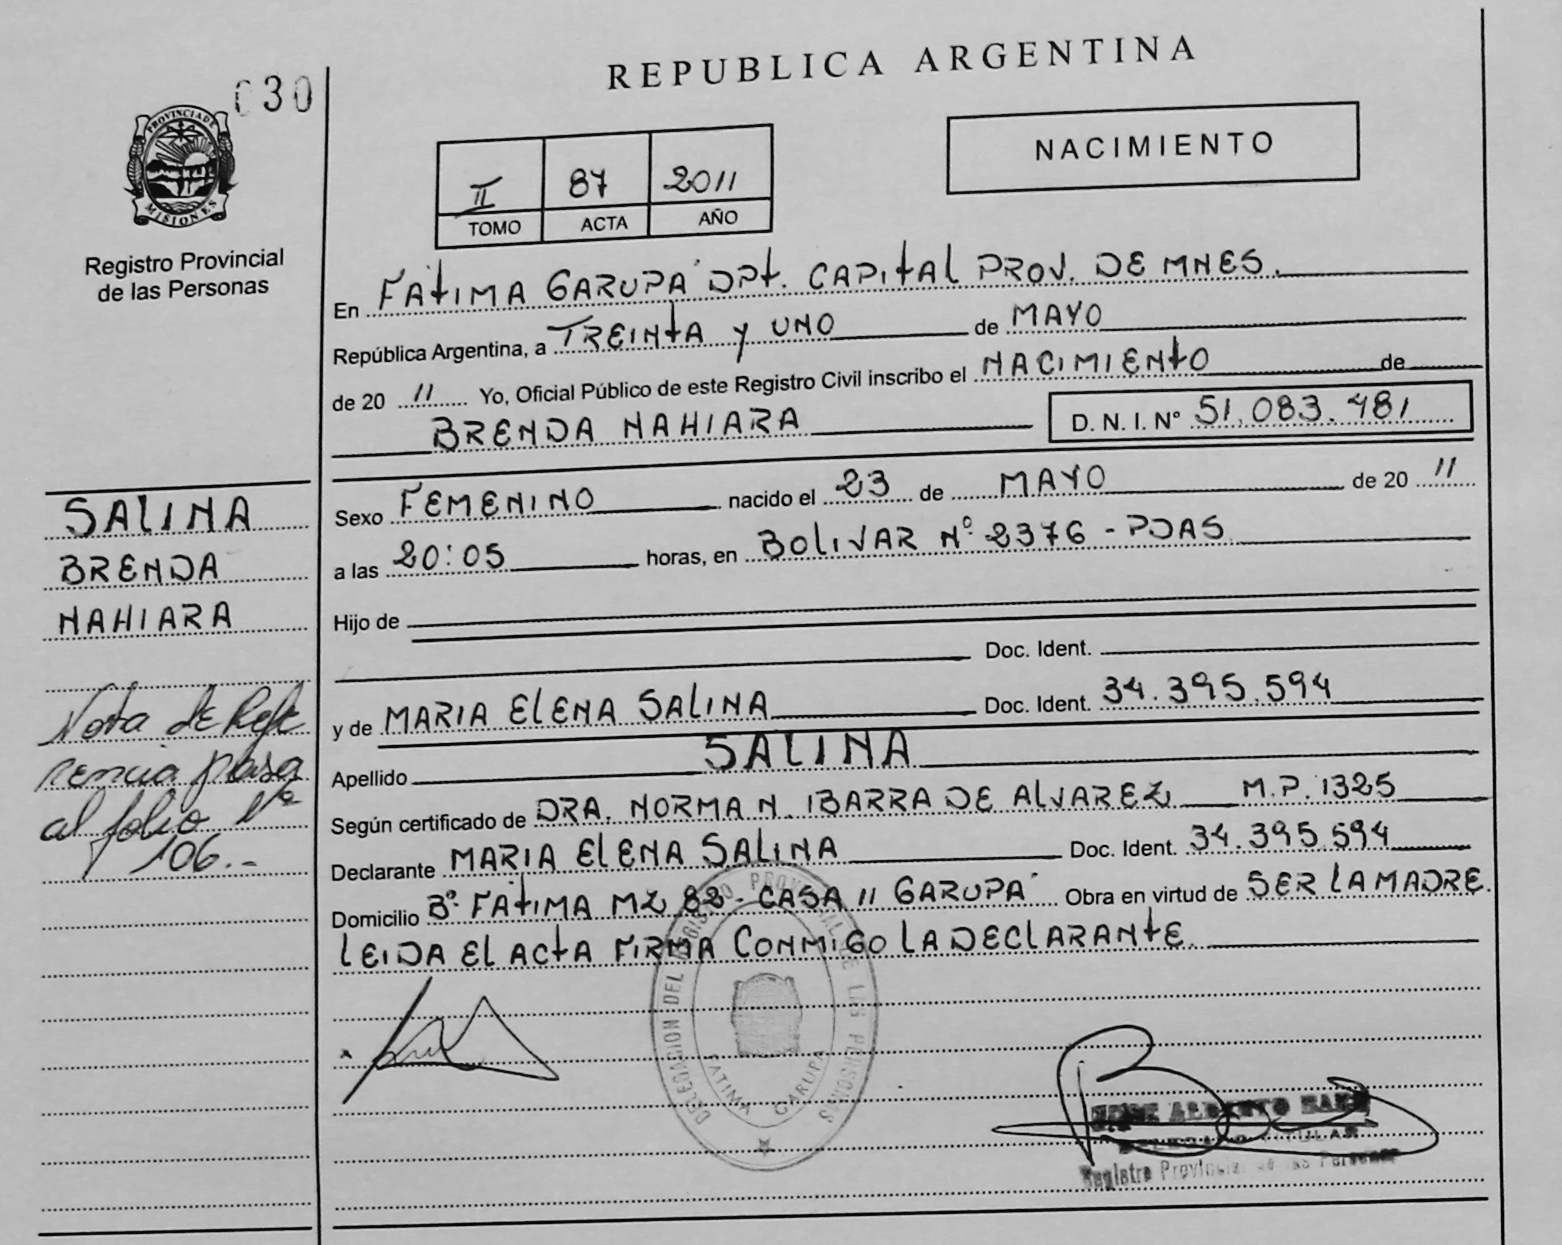 030
REPUBLICA ARGENTINA
PROVINCIA DE
MISIONES
Registro Provincial
de las Personas
II 87 2011
TOMO ACTA AÑO
NACIMIENTO
En FÁTIMA GARUPÁ DPT. CAPITAL PROV. DE MNES.
República Argentina, a TREINTA y UNO de MAYO
de 20 11 Yo, Oficial Público de este Registro Civil inscribo el NACIMIENTO de
BRENDA NAHIARA D. N. I. N° 51.083.481
Sexo FEMENINO nacido el 23 de MAYO de 20 11
a las 20:05 horas, en BOLIVAR N° 2376 - PDAS
Hijo de
Doc. Ident.
y de MARIA ELENA SALINA Doc. Ident. 34.395.594
Apellido SALINA
Según certificado de DRA. NORMA N. IBARRA DE ALVAREZ M.P. 1325
Declarante MARIA ELENA SALINA Doc. Ident. 34.395.594
Domicilio B° FÁTIMA MZ 82 - CASA 11 GARUPÁ Obra en virtud de SER LA MADRE.
LEIDA EL ACTA FIRMA CONMIGO LA DECLARANTE
SALINA
BRENDA
NAHIARA
Nota de Refe
rencia pasa
al folio N°
106.-
DELEGACION DEL REGISTRO PROVINCIAL DE LAS PERSONAS
FATIMA GARUPA
ALBERTO
DELEGADO TITULAR
Registro Provincial de las Personas